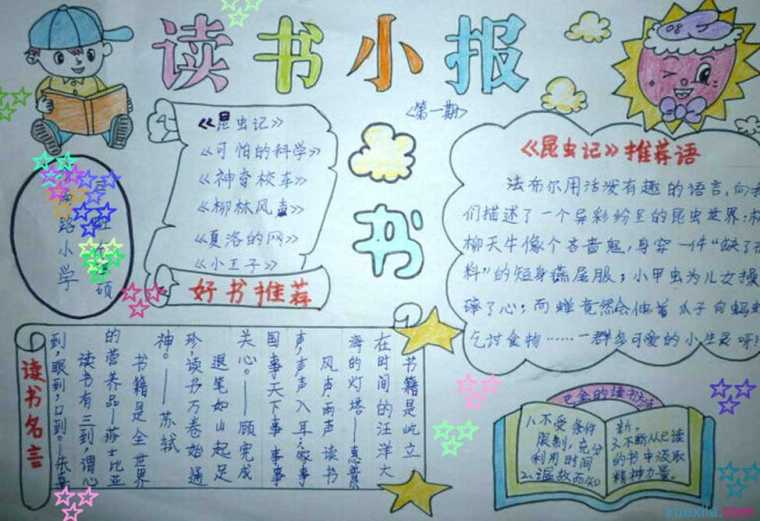 读书小报
08
<第一期>
《昆虫记》
《可怕的科学》
《神奇校车》
《柳林风声》
《夏洛的网》
《小王子》
好书推荐
书
路小学
硕
《昆虫记》推荐语
法布尔用活泼有趣的语言,向我
们描述了一个异彩纷呈的昆虫世界:
柳天牛像个吝啬鬼,身穿一件“缺了布
料”的短身燕尾服;小甲虫为儿女操
碎了心;而蝉竟然会伸着爪子向蚂蚁
乞讨食物……一群多可爱的小生灵呀!
读书名言
书籍是屹立
在时间的汪洋大
海的灯塔——惠普
风声,雨声,读书
声,声声入耳;家事,
国事,天下事,事事
关心。——顾宪成
退笔如山起足
珍,读书万卷始通
神。——苏轼
书籍是全世界
的营养品——莎士比亚
读书有三到,谓心
到,眼到,口到。——朱熹
1.不受条件
限制,充分
利用时间
2.温故而知
新。
3.不断从已读
的书中汲取
精神力量。